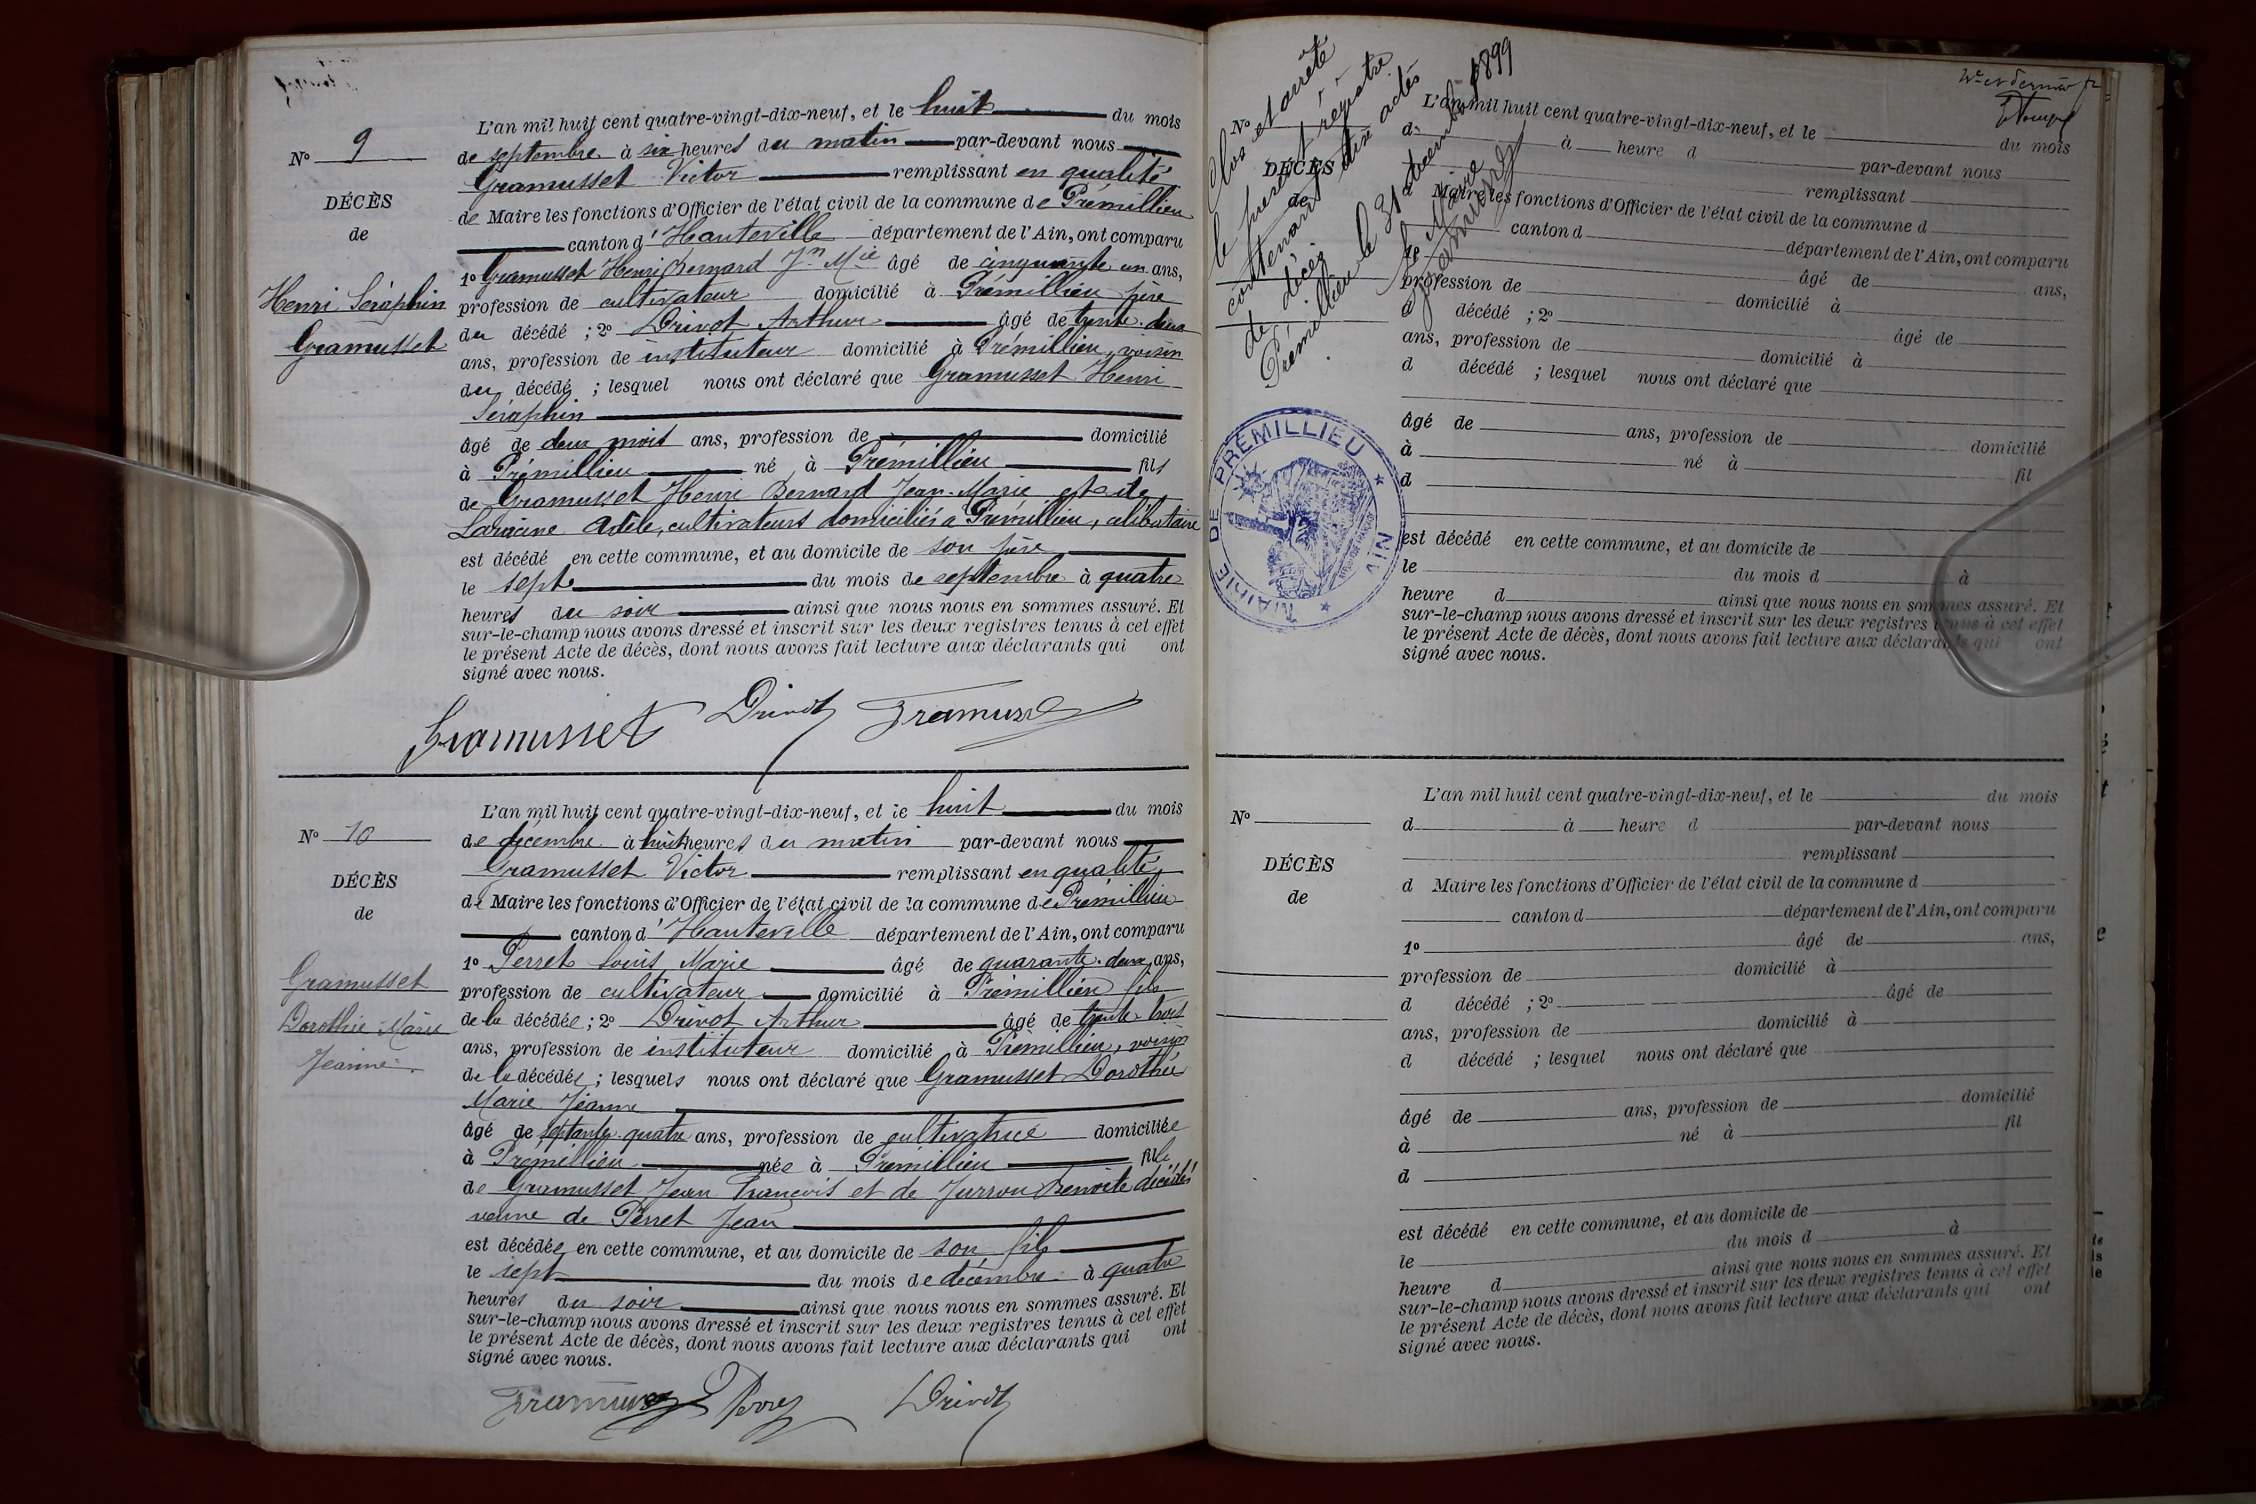 L'an mil huit cent quatre-vingt-dix-neuf, et le huit du mois
Nº 9
de septembre à six heures du matin par-devant nous
Gramusset Victor remplissant en qualité
DÉCÈS
de
de Maire les fonctions d'Officier de l'état civil de la commune de Prémillieu
canton d'Hauteville département de l'Ain, ont comparu
1º Gramusset Henri Bernard Jn Mie âgé de cinquante un ans,
Henri Séraphin
Gramusset
profession de cultivateur domicilié à Prémillieu père
du décédé ; 2º Drivot Arthur âgé de trente-deux
ans, profession de instituteur domicilié à Prémillieu, voisin
du décédé ; lesquel nous ont déclaré que Gramusset Henri
Séraphin
âgé de deux mois ans, profession de domicilié
à Prémillieu né à Prémillieu fils
de Gramusset Henri Bernard Jean-Marie et de
Laracine Adèle, cultivateurs domiciliés à Prémillieu, célibataire
est décédé en cette commune, et au domicile de son père
le sept du mois de septembre à quatre
heures du soir ainsi que nous nous en sommes assuré. Et
sur-le-champ nous avons dressé et inscrit sur les deux registres tenus à cet effet
le présent Acte de décès, dont nous avons fait lecture aux déclarants qui ont
signé avec nous.
Gramusset Drivot Gramusset
L'an mil huit cent quatre-vingt-dix-neuf, et le huit du mois
Nº 10
de décembre à huit heures du matin par-devant nous
Gramusset Victor remplissant en qualité
DÉCÈS
de
de Maire les fonctions d'Officier de l'état civil de la commune de Prémillieu
canton d'Hauteville département de l'Ain, ont comparu
1º Perret Louis Marie âgé de quarante-deux ans,
Gramusset
Dorothée Marie
Jeanne
profession de cultivateur domicilié à Prémillieu fils
de la décédée ; 2º Drivot Arthur âgé de trente-trois
ans, profession de instituteur domicilié à Prémillieu, voisin
de la décédée ; lesquels nous ont déclaré que Gramusset Dorothée
Marie Jeanne
âgé de septante quatre ans, profession de cultivatrice domiciliée
à Prémillieu née à Prémillieu fille
de Gramusset Jean François et de Jurron Benoite décédés
veuve de Perret Jean
est décédée en cette commune, et au domicile de son fils
le sept du mois de décembre à quatre
heures du soir ainsi que nous nous en sommes assuré. Et
sur-le-champ nous avons dressé et inscrit sur les deux registres tenus à cet effet
le présent Acte de décès, dont nous avons fait lecture aux déclarants qui ont
signé avec nous.
Gramusset Perret Drivot
Clos et arrêté
le présent registre
contenant dix actes
de décès
Prémillieu le 31 décembre 1899
Le Maire
Gramusset
MAIRIE DE PRÉMILLIEU
AIN
Nº
DÉCÈS
de
L'an mil huit cent quatre-vingt-dix-neuf, et le du mois
d à heure d par-devant nous
remplissant
d Maire les fonctions d'Officier de l'état civil de la commune d
canton d département de l'Ain, ont comparu
1º âgé de ans,
profession de domicilié à
d décédé ; 2º âgé de
ans, profession de domicilié à
d décédé ; lesquel nous ont déclaré que
âgé de ans, profession de domicilié
à né à fil
d
est décédé en cette commune, et au domicile de
le du mois d à
heure d ainsi que nous nous en sommes assuré. Et
sur-le-champ nous avons dressé et inscrit sur les deux registres tenus à cet effet
le présent Acte de décès, dont nous avons fait lecture aux déclarants qui ont
signé avec nous.
L'an mil huit cent quatre-vingt-dix-neuf, et le du mois
Nº
d à heure d par-devant nous
remplissant
DÉCÈS
de
d Maire les fonctions d'Officier de l'état civil de la commune d
canton d département de l'Ain, ont comparu
1º âgé de ans,
profession de domicilié à
d décédé ; 2º âgé de
ans, profession de domicilié à
d décédé ; lesquel nous ont déclaré que
âgé de ans, profession de domicilié
à né à fil
d
est décédé en cette commune, et au domicile de
le du mois d à
heure d ainsi que nous nous en sommes assuré. Et
sur-le-champ nous avons dressé et inscrit sur les deux registres tenus à cet effet
le présent Acte de décès, dont nous avons fait lecture aux déclarants qui ont
signé avec nous.